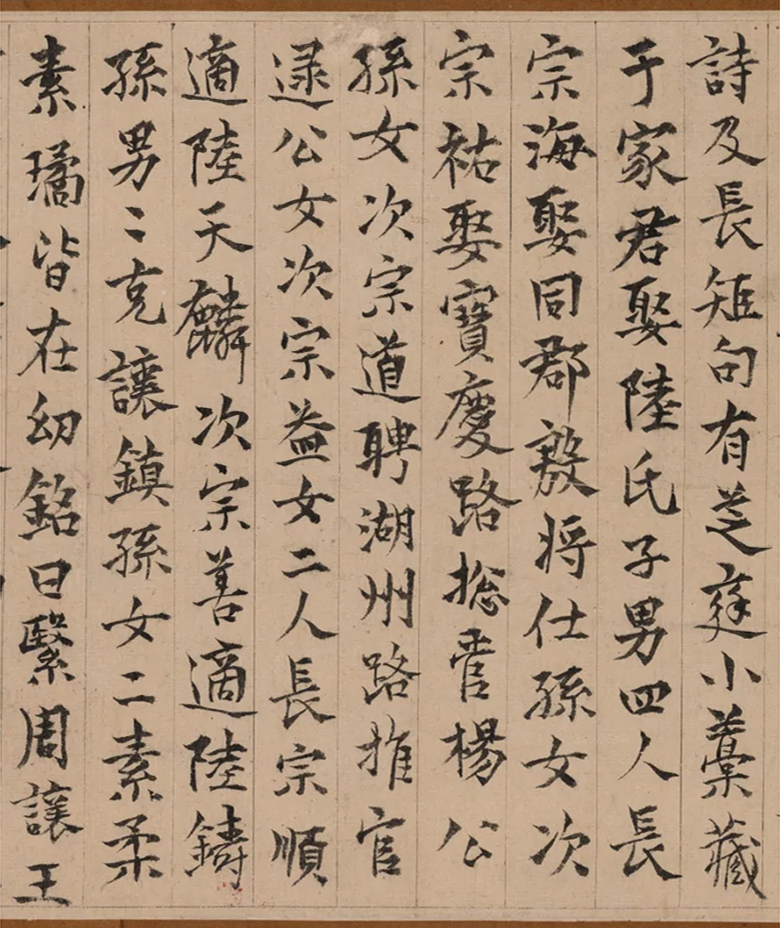 詩及長短句有芝庭小藁藏
于家君娶陸氏子男四人長
宗海娶同郡將仕孫女次
宗祐娶寶慶路捴管楊公
孫女次宗道聘湖州路推官
逯公女次宗益女二人長宗順
適陸天麟次宗善適陸鑄
孫男二克讓鎮孫女二素柔
素璚皆在幼銘曰繄周讓王